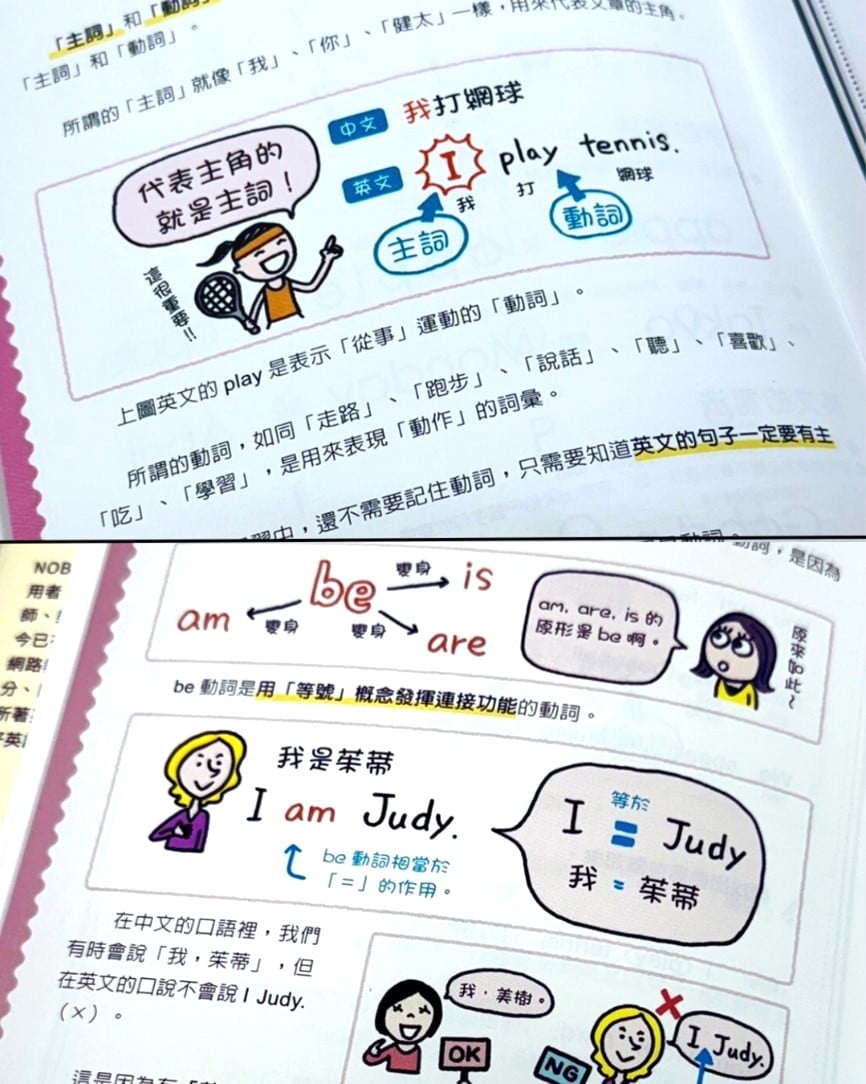 「主詞」和「動詞」
「主詞」和「動詞」。
所謂的「主詞」就像「我」、「你」、「健太」一樣，用來代表文章的主角。
代表主角的
就是主詞！
這很重要!!
中文 我打網球
英文 I play tennis.
我 打 網球
主詞 動詞
上圖英文的 play 是表示「從事」運動的「動詞」。
所謂的動詞，如同「走路」、「跑步」、「說話」、「聽」、「喜歡」、
「吃」、「學習」，是用來表現「動作」的詞彙。
習中，還不需要記住動詞，只需要知道英文的句子一定要有主
動詞，是因為
NOB
用者
師、
今已
網路
分、
所著
am 變身 be 變身 is
變身 are
am, are, is 的
原形是 be 啊。
原來如此～
be 動詞是用「等號」概念發揮連接功能的動詞。
我是茱蒂
I am Judy.
be 動詞相當於
「＝」的作用。
等於
I = Judy
我 = 茱蒂
在中文的口語裡，我們
有時會說「我，茱蒂」，但
在英文的口說不會說 I Judy.
（×）。
我，美樹。
OK
NG
I Judy.
這是因為有